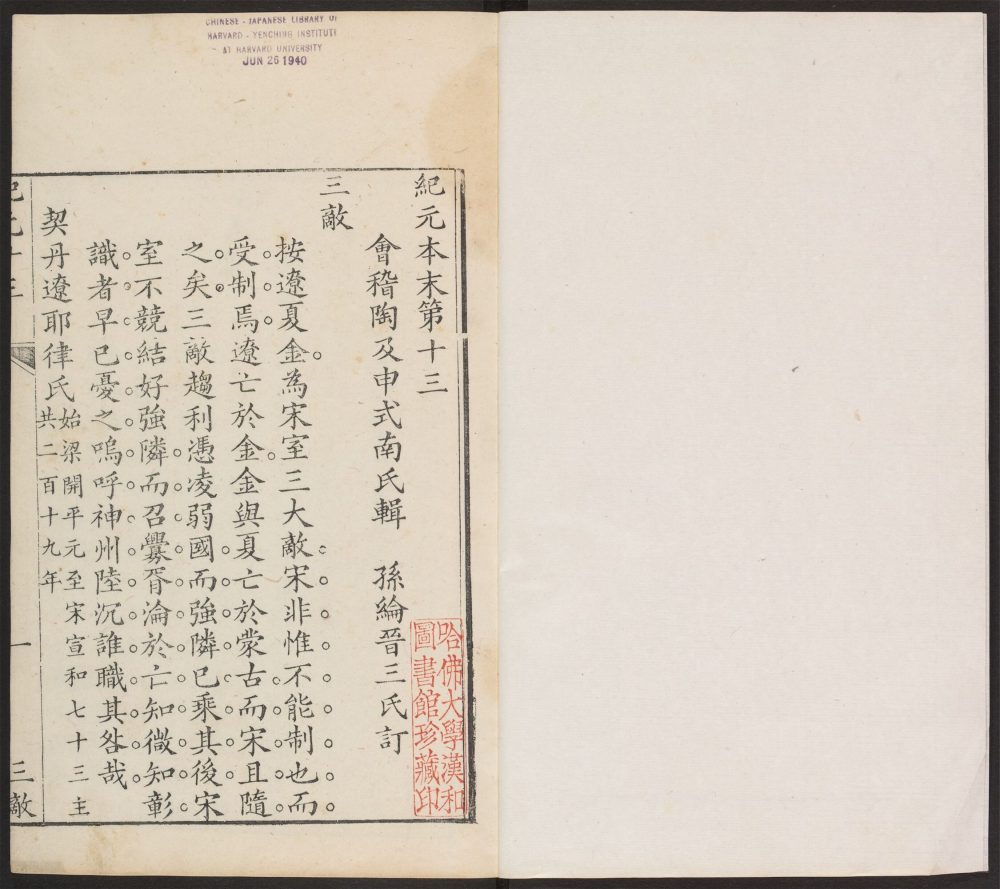 CHINESE - JAPANESE LIBRARY OF
HARVARD - YENCHING INSTITUTE
AT HARVARD UNIVERSITY
JUN 26 1940
紀元本末第十三
會稽陶及申式南氏輯　孫綸晉三氏訂
三敵
按遼夏金為宋室三大敵宋非惟不能制也而
受制焉遼亡於金金與夏亡於蒙古而宋且隨
之矣三敵趨利憑凌弱國而強隣已乘其後宋
室不競結好強隣而召釁胥淪於亡知微知彰
識者早已憂之嗚呼神州陸沉誰職其咎哉
契丹遼耶律氏始梁開平元至宋宣和七十三主
共二百十九年
紀元十三
一
三敵
哈佛大學漢和
圖書館珍藏印